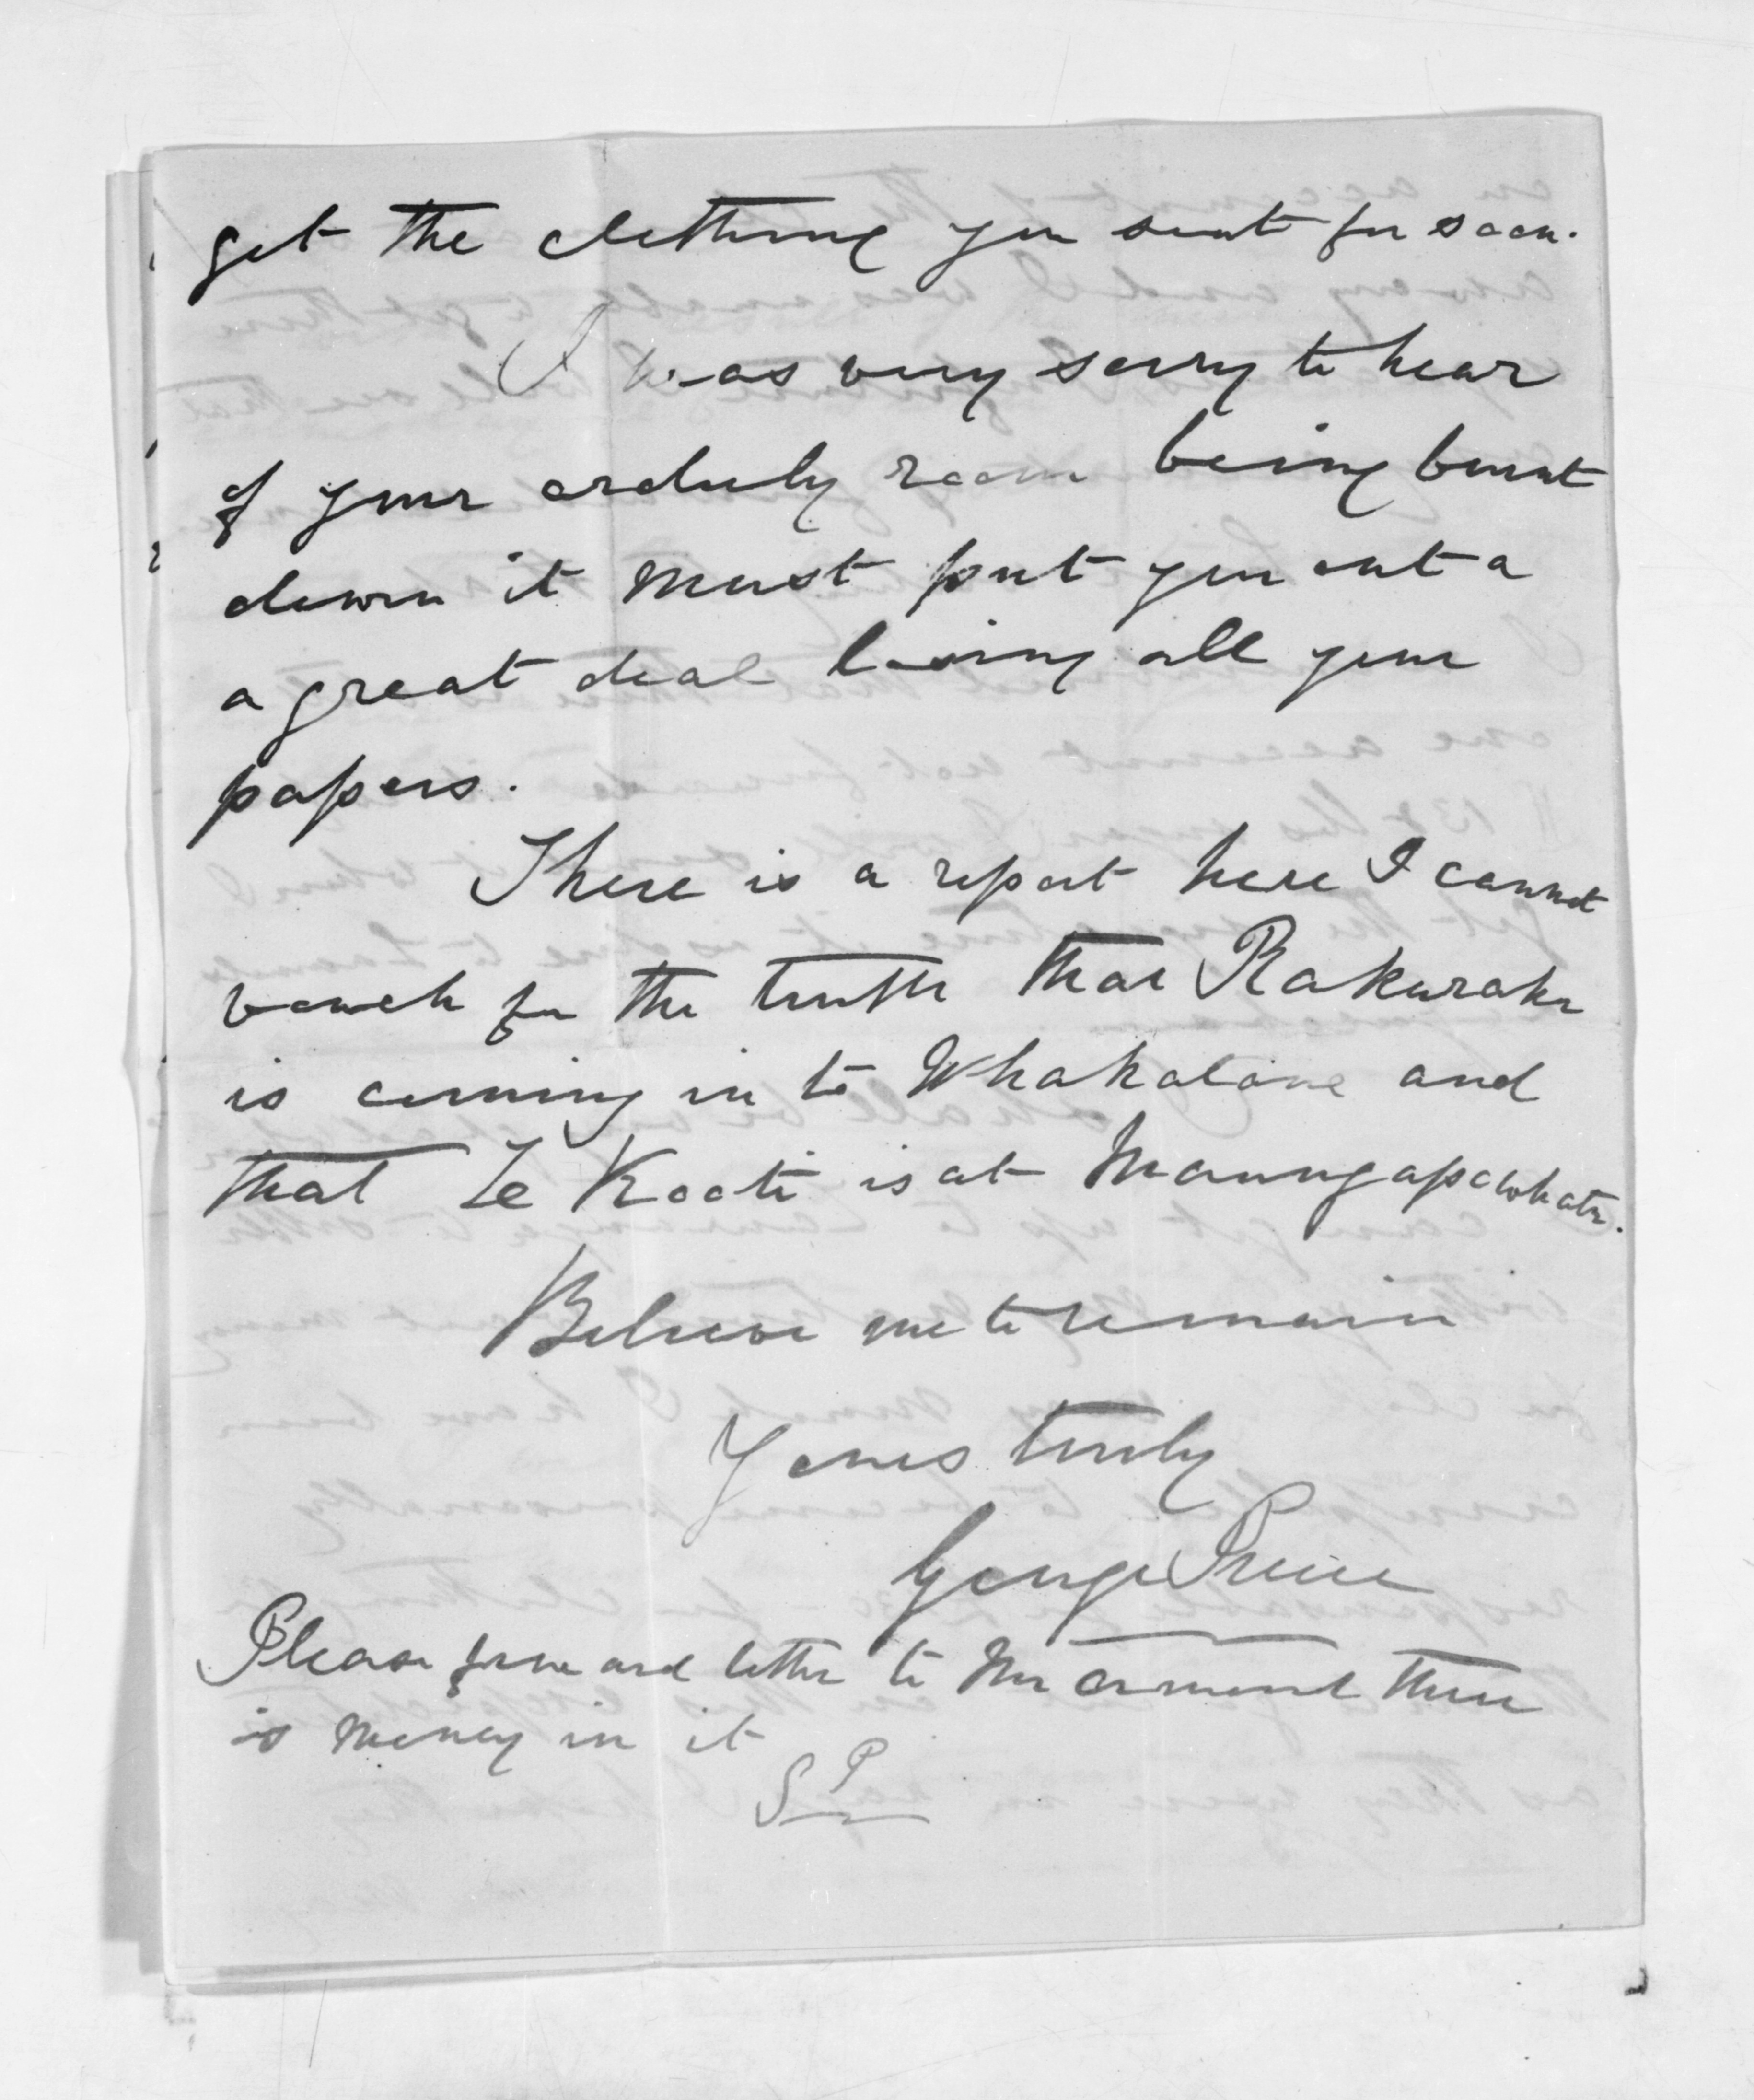 get the clothing you sent for soon.
I was very sorry to hear
of your orderly room being burnt
down it must put you out a
a great deal losing all your
papers.
There is a report here I cannot
vouch for the truth that Rakuraku
is coming in to Whakatane and
that Te Kooti is at Maungapowhatu.
Believe me to remain
Yours truly
George Preece
Please forward letter to Mr there
is money in it
P